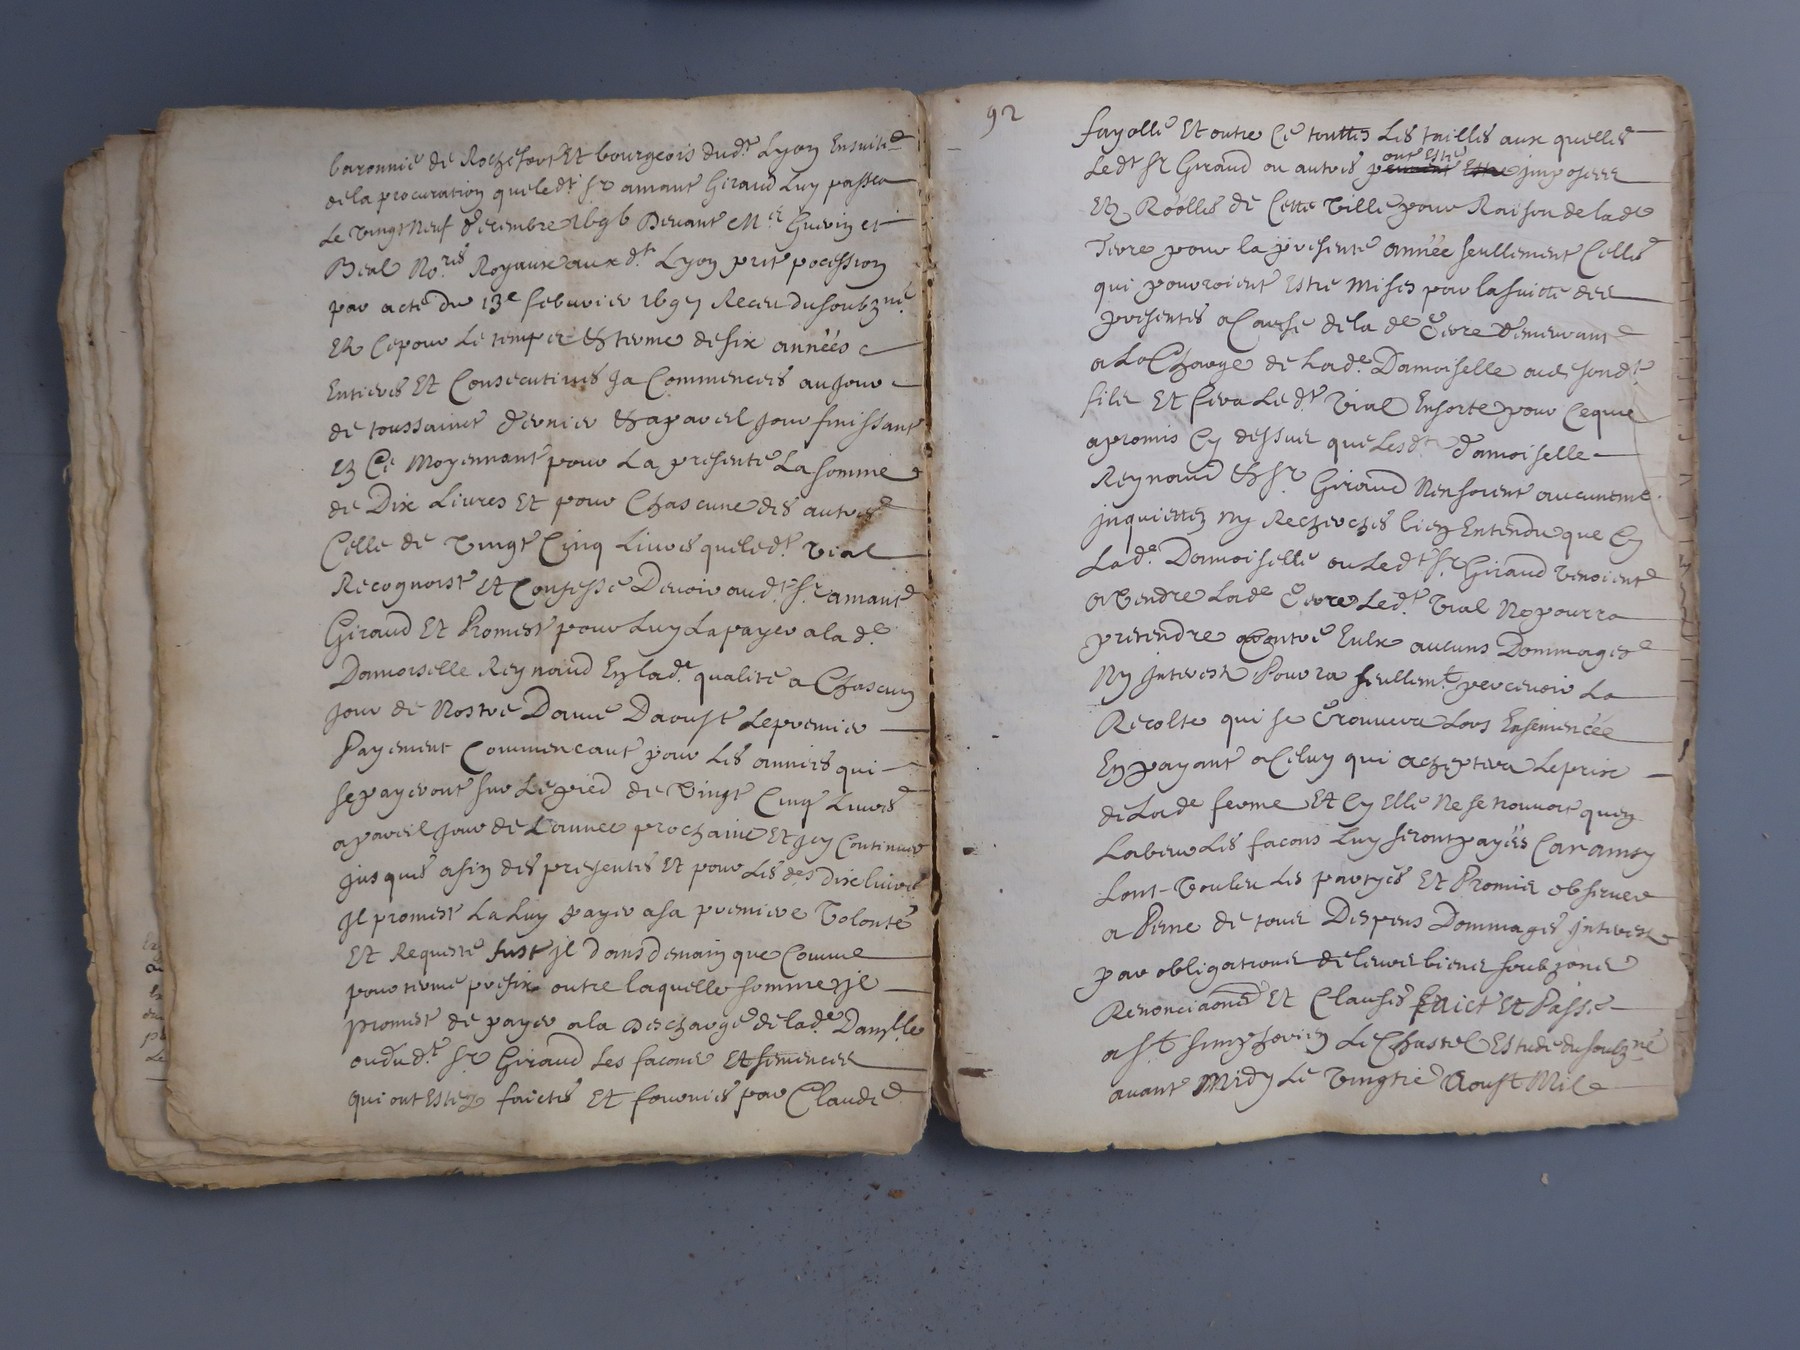 baronnie de Rochefort Et bourgeois dud.t Lyon Ensuite
de la procuration queled.t Sr amant Giraud Luy passea
Le vingt Neuf decembre 1696 Devant Me Guerin et
Beal No.ris Royaux aud.t Lyon prit pocession
par acte du 13e febvrier 1697 Receu du soubzne
Et Cepour Le temps Et terme de six années
Entieres Et Consecutives Ja Commencées au Jour
de toussainct dernier Et a pareil Jour finissant
Et Ce Moyennant pour La presente La somme
de Dix Livres Et pour Chascune des autres
Celle de Vingt Cinq Livres queled.t Vial
Recognoist Et Confesse Devoir aud.t Sr amant
Giraud Et Promest pour Luy La payer a la d.e
Damoiselle Reynaud En lad.e qualité a Chascun
Jour de Nostre Dame Daoust Lepremier
Payement Commencant pour Les années qui
se payeront sur Le pied de Vingt Cinq Livres
a pareil Jour de L'année prochaine Et Jcy Continuer
Jusques a fin des presentes Et pour Les d.es dix livres
Jl promest La Luy payer a sa premiere Volonté
Et Requeste fust Jl dans demain que Comme
pour terme prefix outre laquelle somme Jl
promest de payer a la Descharge de lad.e Dam.lle
ou dud.t Sr Giraud Les facons Et semences
qui ont Estez faictes Et fournies par Claude
92
fayolle Et outre Ce touttes Les tailles aux quelles
Led.t Sr Giraud ou autres ont Esté imposees
Ez Roolles de Cette Ville pour Raison de lad.e
Terre pour la presente année seullement Celles
qui pourroient Estre Mises par la suitte des
presentes a Cause de la d.e terre demeurant
a La Charge de Lad.e Damoiselle ou de sond.t
fils Et fera Led.t Vial Ensorte pour Ceque
a promis Cy dessus que Lesd.t damoiselle
Reynaud Et Sr Giraud N'en soient aucuneme
Jnquiettez Ny Recherches bien Entendu que Cy
Lad.e Damoiselle ou Led.t Sr Giraud Venoient
a Vendre Lad.e terre Led.t Vial No pourra
pretendre Contre Eulx aucuns Dommages
Ny Interest Pourra seullem.t percevoir La
Recolte qui se trouvera Lors Ensemencée
En payant a Celuy qui acheptera Le prix
de Lad.e ferme Et Cy Elle Ne se trouvoit quen
Labeur Les facons Luy seront payées Car ainsy
Lont Voulu Les partyes Et Promis observer
a Peine de tous Despens Dommages Interest
par obligations de leurs biens soubzons
Renonciaons Et Clauses faict Et Passé
a St Simphorien Le Chastel Estude du soubzné
avant Midy Le Vingtie Aoust Mil